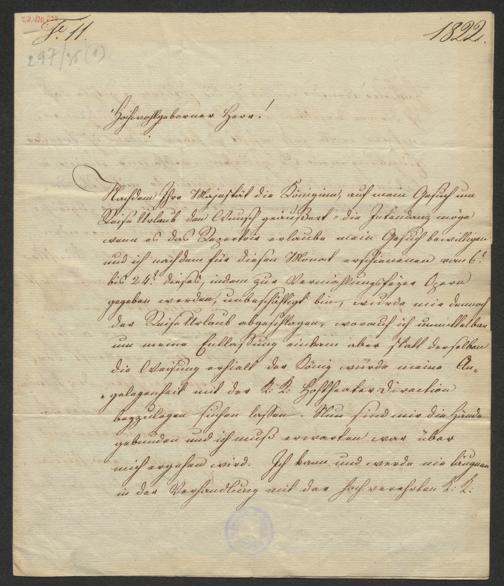 F. 11. 1822.
297/36(1)
Hochwohlgeborner Herr!
Nachdem Ihre Majestät die Königinn, auf mein Gesuch um
Reise Urlaub den Wunsch geäussert: die Intendanz möge
wenn es das Repertoir erlaube mein Gesuch bewilligen
und ich nachdem für diesen Monat erschienenen vom 6t
bis 24t dieses, indem zur Vermählungsfeyer Opern
gegeben werden, unbeschäftigt bin, wurde mir dennoch
der Reise Urlaub abgeschlagen, worauf ich unmittelbar
um meine Entlassung einkam aber statt derselben
die Weisung erhielt der König würde meine An-
gelegenheit mit der K: K: Hoftheater-direction
beyzulegen suchen lassen. Nun sind mir die Hände
gebunden und ich muß erwarten was über
mich ergehen wird. Ich kann und werde nie läugnen
in der Verhandlung mit der hochverehrten K: K: